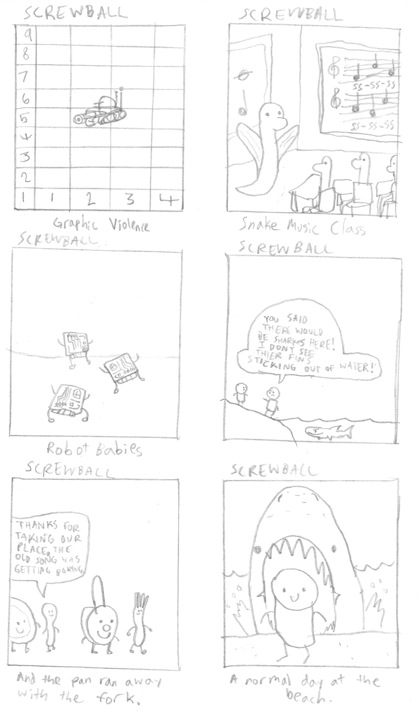 SCREWBALL
9
8
7
6
5
4
3
2
1 1 2 3 4
Graphic Violence
SCREWBALL
SS-SS-SS
SS-SS-SS
Snake Music Class
SCREWBALL
Robot Babies
SCREWBALL
YOU SAID
THERE WOULD
BE SHARKS HERE!
I DON'T SEE
THIER FINS
STICKING OUT OF WATER!!
SCREWBALL
THANKS FOR
TAKING OUR
PLACE. THE
OLD SONG WAS
GETTING BORING.
And the pan ran away
with the fork.
SCREWBALL
A normal day at the
beach.